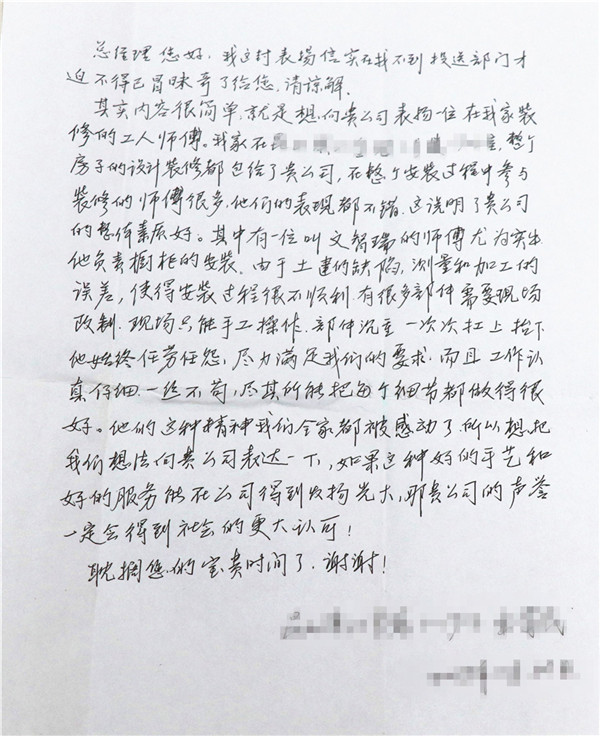 总经理您好，我这封表扬信实在找不到投送部门才
迫不得已冒昧寄了给您，请谅解.
其实内容很简单，就是想向贵公司表扬一位在我家装
修的工人师傅。我家在 整个
房子的设计装修都包给了贵公司，在整个安装过程中参与
装修的师傅很多，他们的表现都不错，这说明了贵公司
的整体素质好。其中有一位叫文智瑞的师傅尤为突出
他负责橱柜的安装。由于土建的缺陷，测量和加工的
误差，使得安装过程很不顺利.有很多部件需要现场
改制.现场只能手工操作.部件沉重一次次扛上抬下
他始终任劳任怨，尽力满足我们的要求.而且工作认
真仔细一丝不苟，尽其所能把每个细节都做得很
好。他的这种精神我们全家都被感动了所以想把
我们想法向贵公司表达一下，如果这种好的手艺和
好的服务能在公司得到发扬光大，那贵公司的声誉
一定会得到社会的更大认可！
耽搁您的宝贵时间了.谢谢！